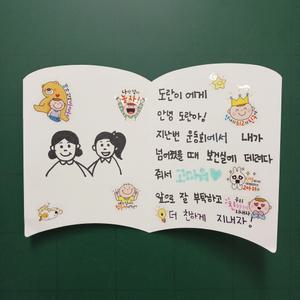 도란이 에게
안녕 도란아!
지난번 운동회에서 내가
넘어졌을 때 보건실에 데려다
줘서 고마워
앞으로 잘 부탁하고
더 친하게 지내자!